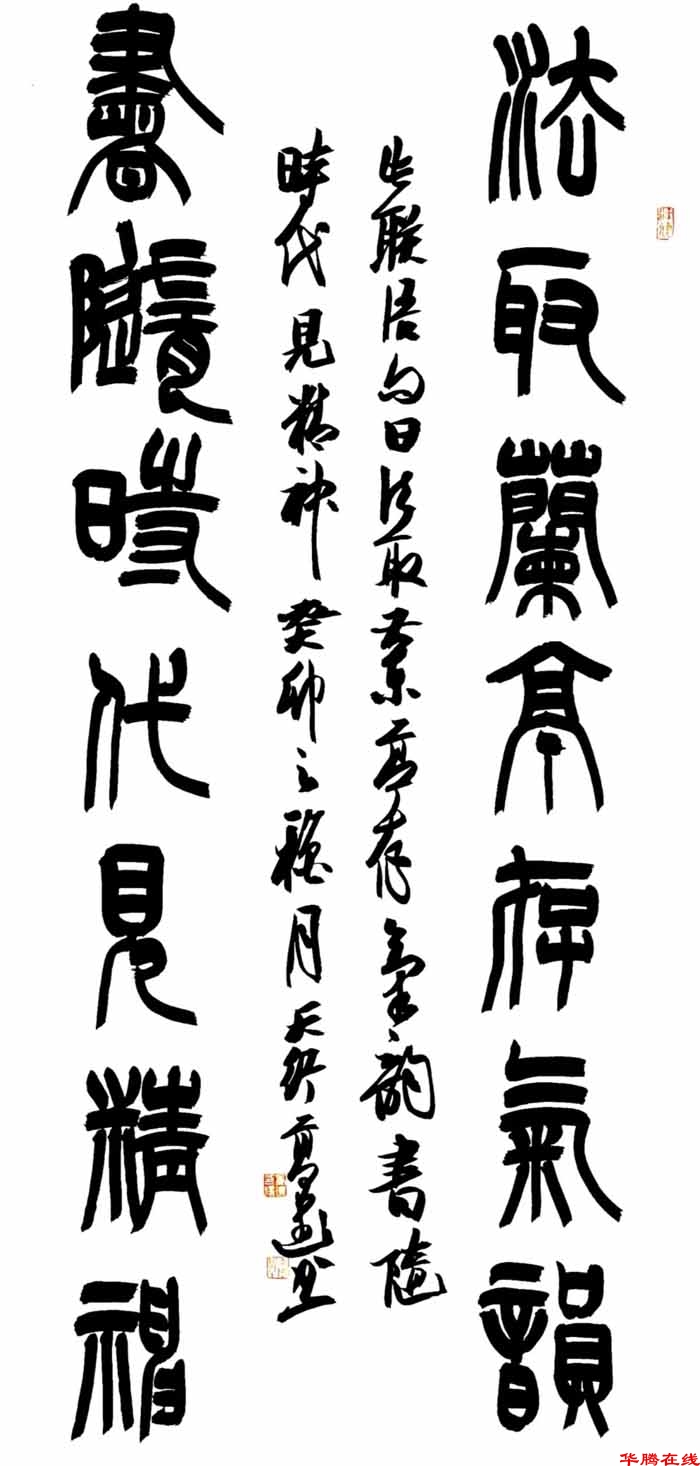 法取蘭亭存氣韻
聯語句曰法取蘭亭存氣韻書隨
時代見精神癸卯之月
書隨時代見精神
华腾在线